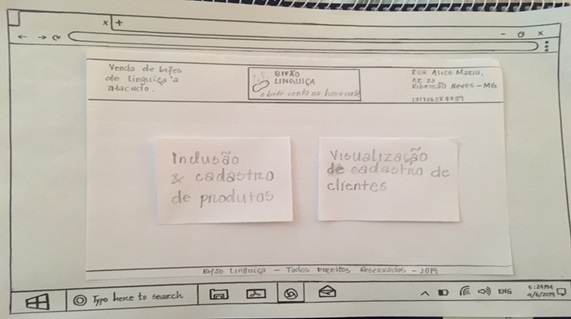 x +
- o x
Venda de bifes
de linguiça a
atacado.
BIFÃO
LINGUIÇA
Rua Alice Maria,
Nº 23
Ribeirão Neves - MG
Inclusão
& cadastro
de produtos
Visualização
de cadastro de
clientes
Bifão Linguiça - Todos Direitos Reservados - 2019
Type here to search
ENG
5:24PM
4/6/2019